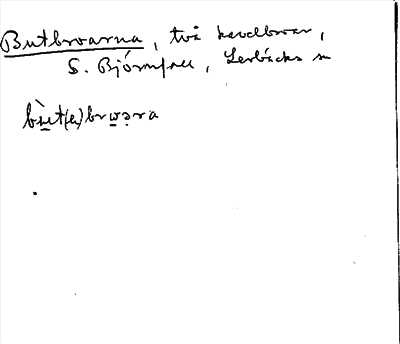 Butbroarna, två kavelbroar,
S. Björnfall, Lerbäcks sn
bùt(a)brωəra